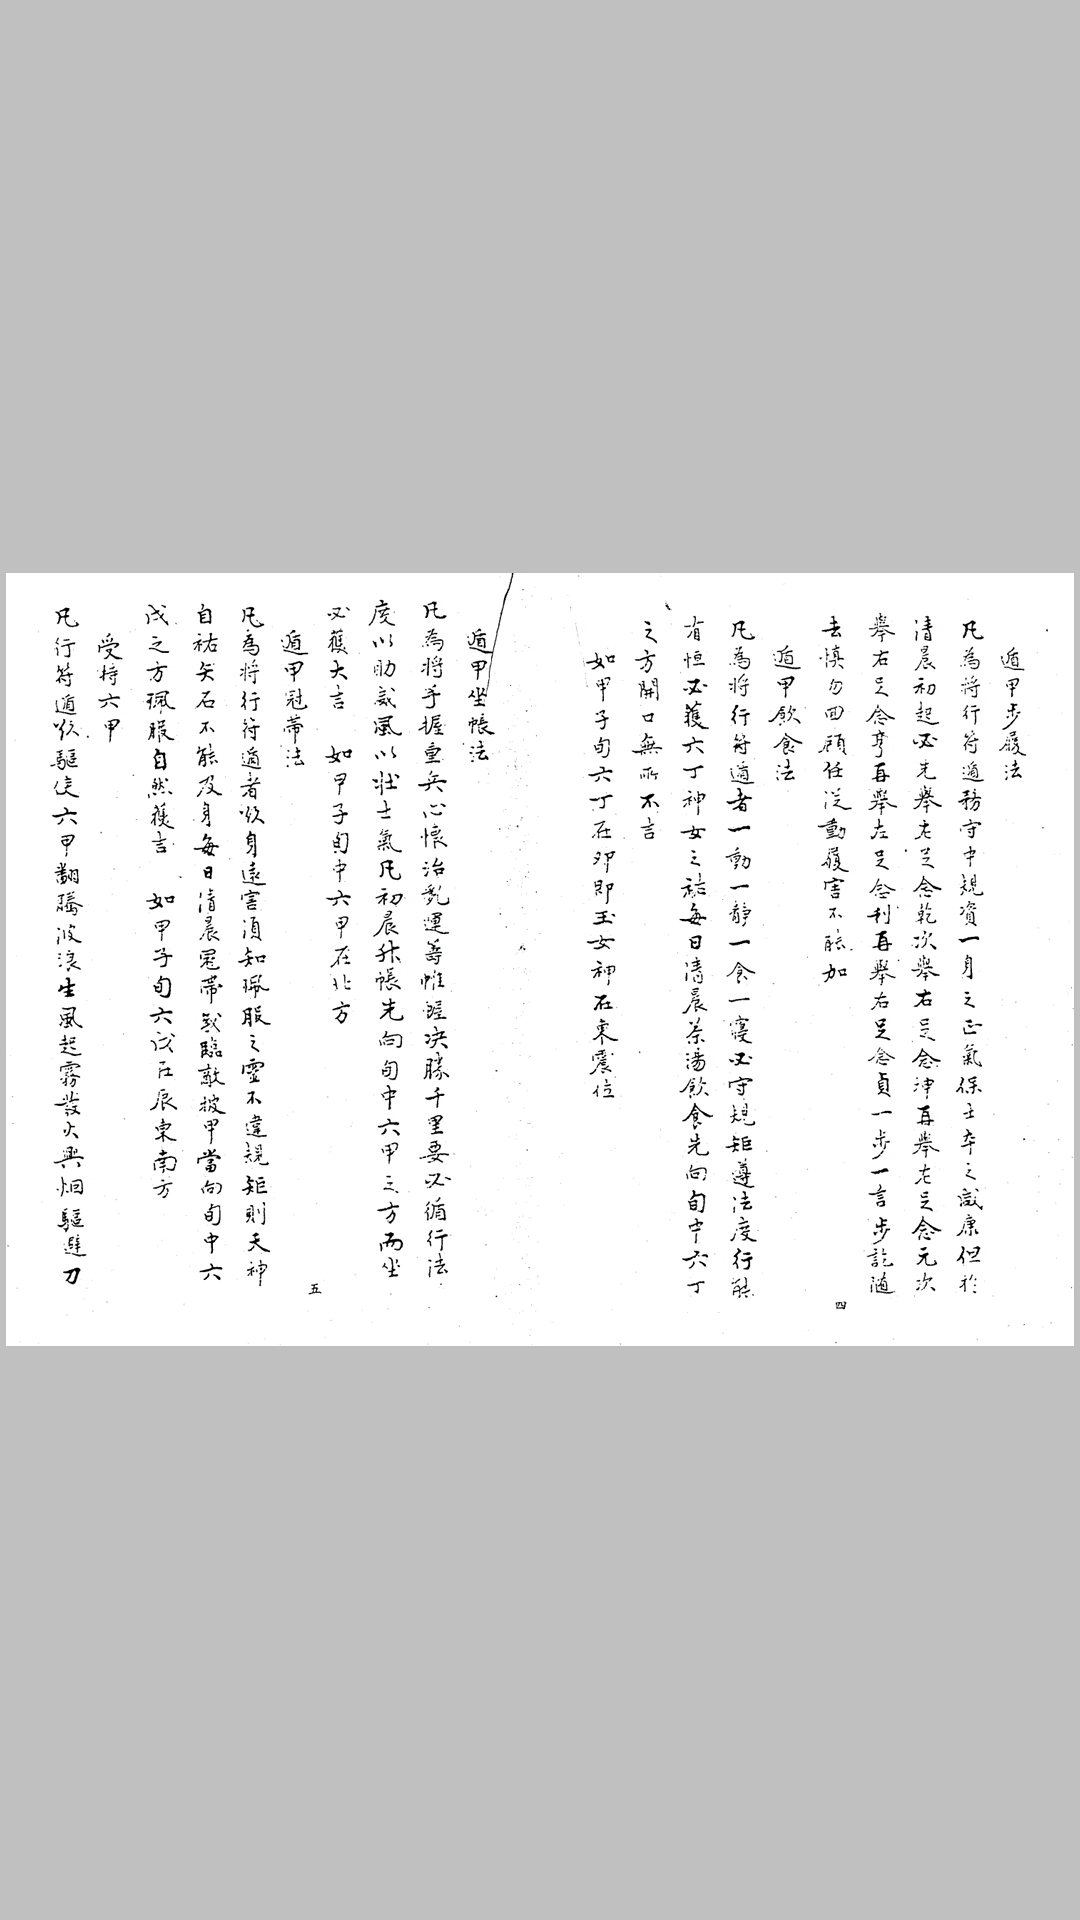 遁甲步履法
凡為將行符遁務守中規資一身之正氣保士卒之咸康但於
清晨初起必先舉左足念乾次舉右足念津再舉左足念元次
舉右足念亨再舉左足念利再舉右足念貞一步一言步訖隨
去慎勿回顧任從動履害不能加
遁甲飲食法
凡為將行符遁者一動一靜一食一寢必守規矩遵法度行能
有恒必獲六丁神女之祐每日清晨茶湯飲食先向旬中六丁
之方開口無所不言
如甲子旬六丁在卯即玉女神在東震位
四
遁甲坐帳法
凡為將手握重兵心懷治亂運籌帷幄決勝千里要必循行法
度以助威風以壯士氣凡初晨升帳先向旬中六甲之方而坐
必獲大吉 如甲子旬中六甲在北方
遁甲冠帶法
凡為將行符遁者欲身遠害須知珮服之靈不違規矩則天神
自祐矢石不能及身每日清晨冠帶或臨敵披甲當向旬中六
戊之方珮服自然獲吉 如甲子旬六戊在辰東南方
受持六甲
凡行符遁欲驅使六甲翻騰波浪生風起霧發火興烟驅避刀
五